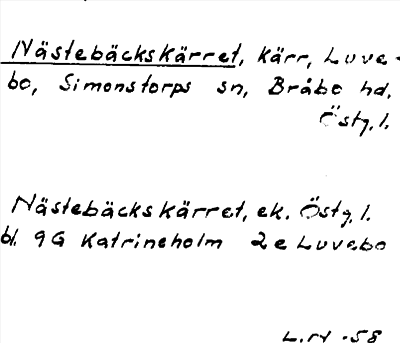 Nästebäckskärret, kärr, Luve-
bo, Simonstorps sn, Bråbo hd,
Östg. l.
Nästebäckskärret, ek. Östg. l.
bl. 9G Katrineholm 2e Luvebo
-58